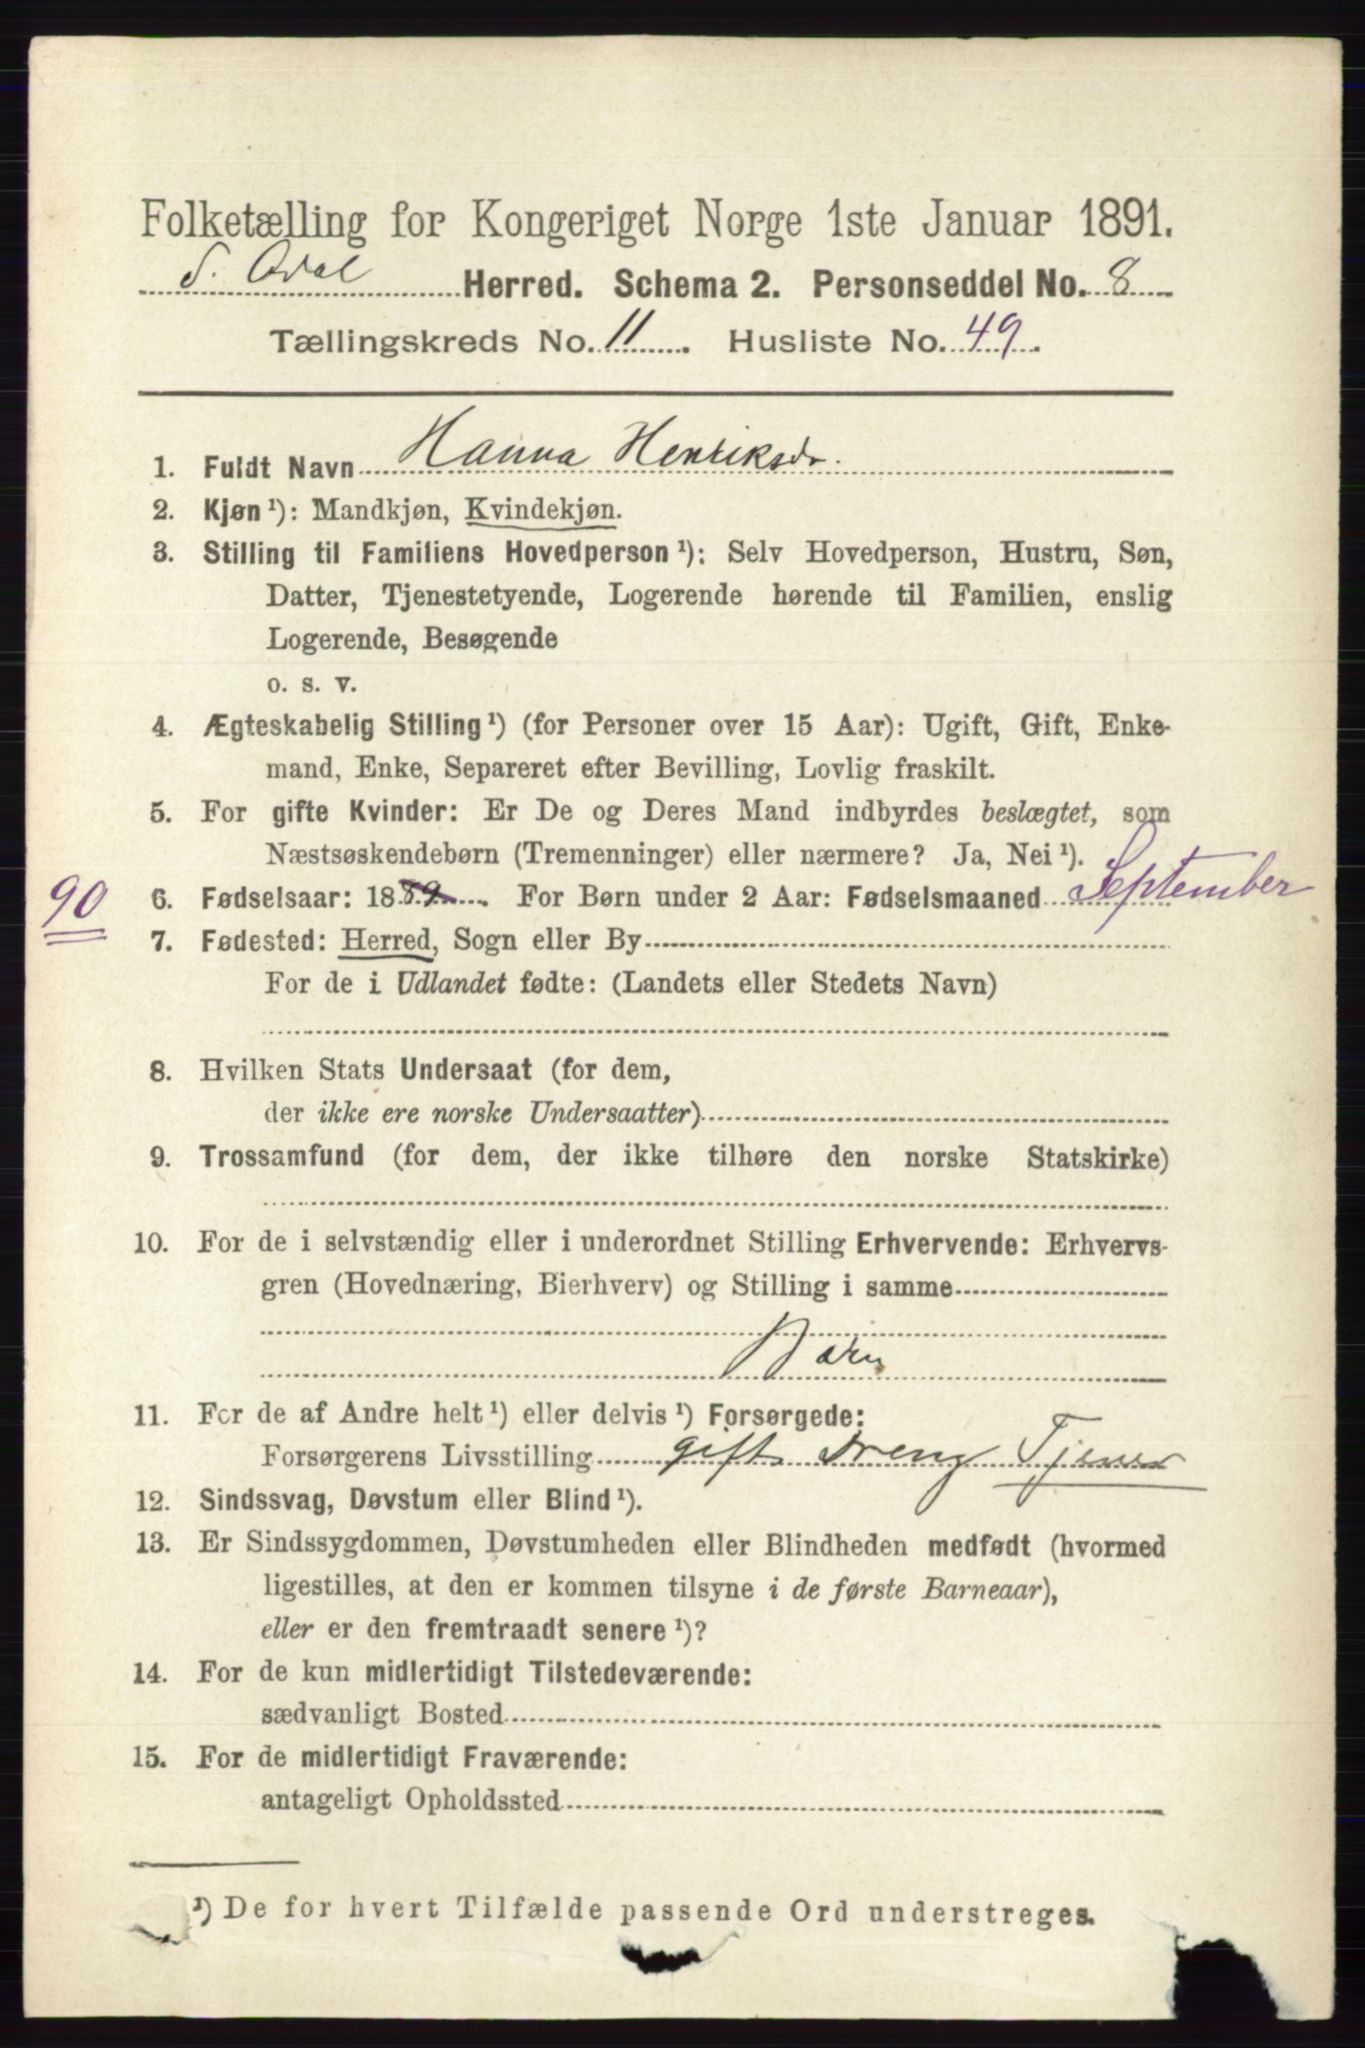 Folketælling for Kongeriget Norge 1ste Januar 1891.
S. Odal Herred. Schema 2. Personseddel No. 8
Tællingskreds No. 11. Husliste No. 49.
1. Fuldt Navn Hanna Henriksdr.
2. Kjøn ¹): Mandkjøn, Kvindekjøn.
3. Stilling til Familiens Hovedperson ¹): Selv Hovedperson, Hustru, Søn,
Datter, Tjenestetyende, Logerende hørende til Familien, enslig
Logerende, Besøgende
o. s. v.
4. Ægteskabelig Stilling ¹) (for Personer over 15 Aar): Ugift, Gift, Enke-
mand, Enke, Separeret efter Bevilling, Lovlig fraskilt.
5. For gifte Kvinder: Er De og Deres Mand indbyrdes beslægtet, som
Næstsøskendebørn (Tremenninger) eller nærmere? Ja, Nei ¹).
90 6. Fødselsaar: 1889. For Børn under 2 Aar: Fødselsmaaned September
7. Fødested: Herred, Sogn eller By
For de i Udlandet fødte: (Landets eller Stedets Navn)
8. Hvilken Stats Undersaat (for dem,
der ikke ere norske Undersaatter)
9. Trossamfund (for dem, der ikke tilhøre den norske Statskirke)
10. For de i selvstændig eller i underordnet Stilling Erhvervende: Erhvervs-
gren (Hovednæring, Bierhverv) og Stilling i samme
Barn
11. For de af Andre helt ¹) eller delvis ¹) Forsørgede:
Forsørgerens Livsstilling gift Dreng Tjener
12. Sindssvag, Døvstum eller Blind ¹).
13. Er Sindssygdommen, Døvstumheden eller Blindheden medfødt (hvormed
ligestilles, at den er kommen tilsyne i de første Barneaar),
eller er den fremtraadt senere ¹)?
14. For de kun midlertidigt Tilstedeværende:
sædvanligt Bosted
15. For de midlertidigt Fraværende:
antageligt Opholdssted
¹) De for hvert Tilfælde passende Ord understreges.